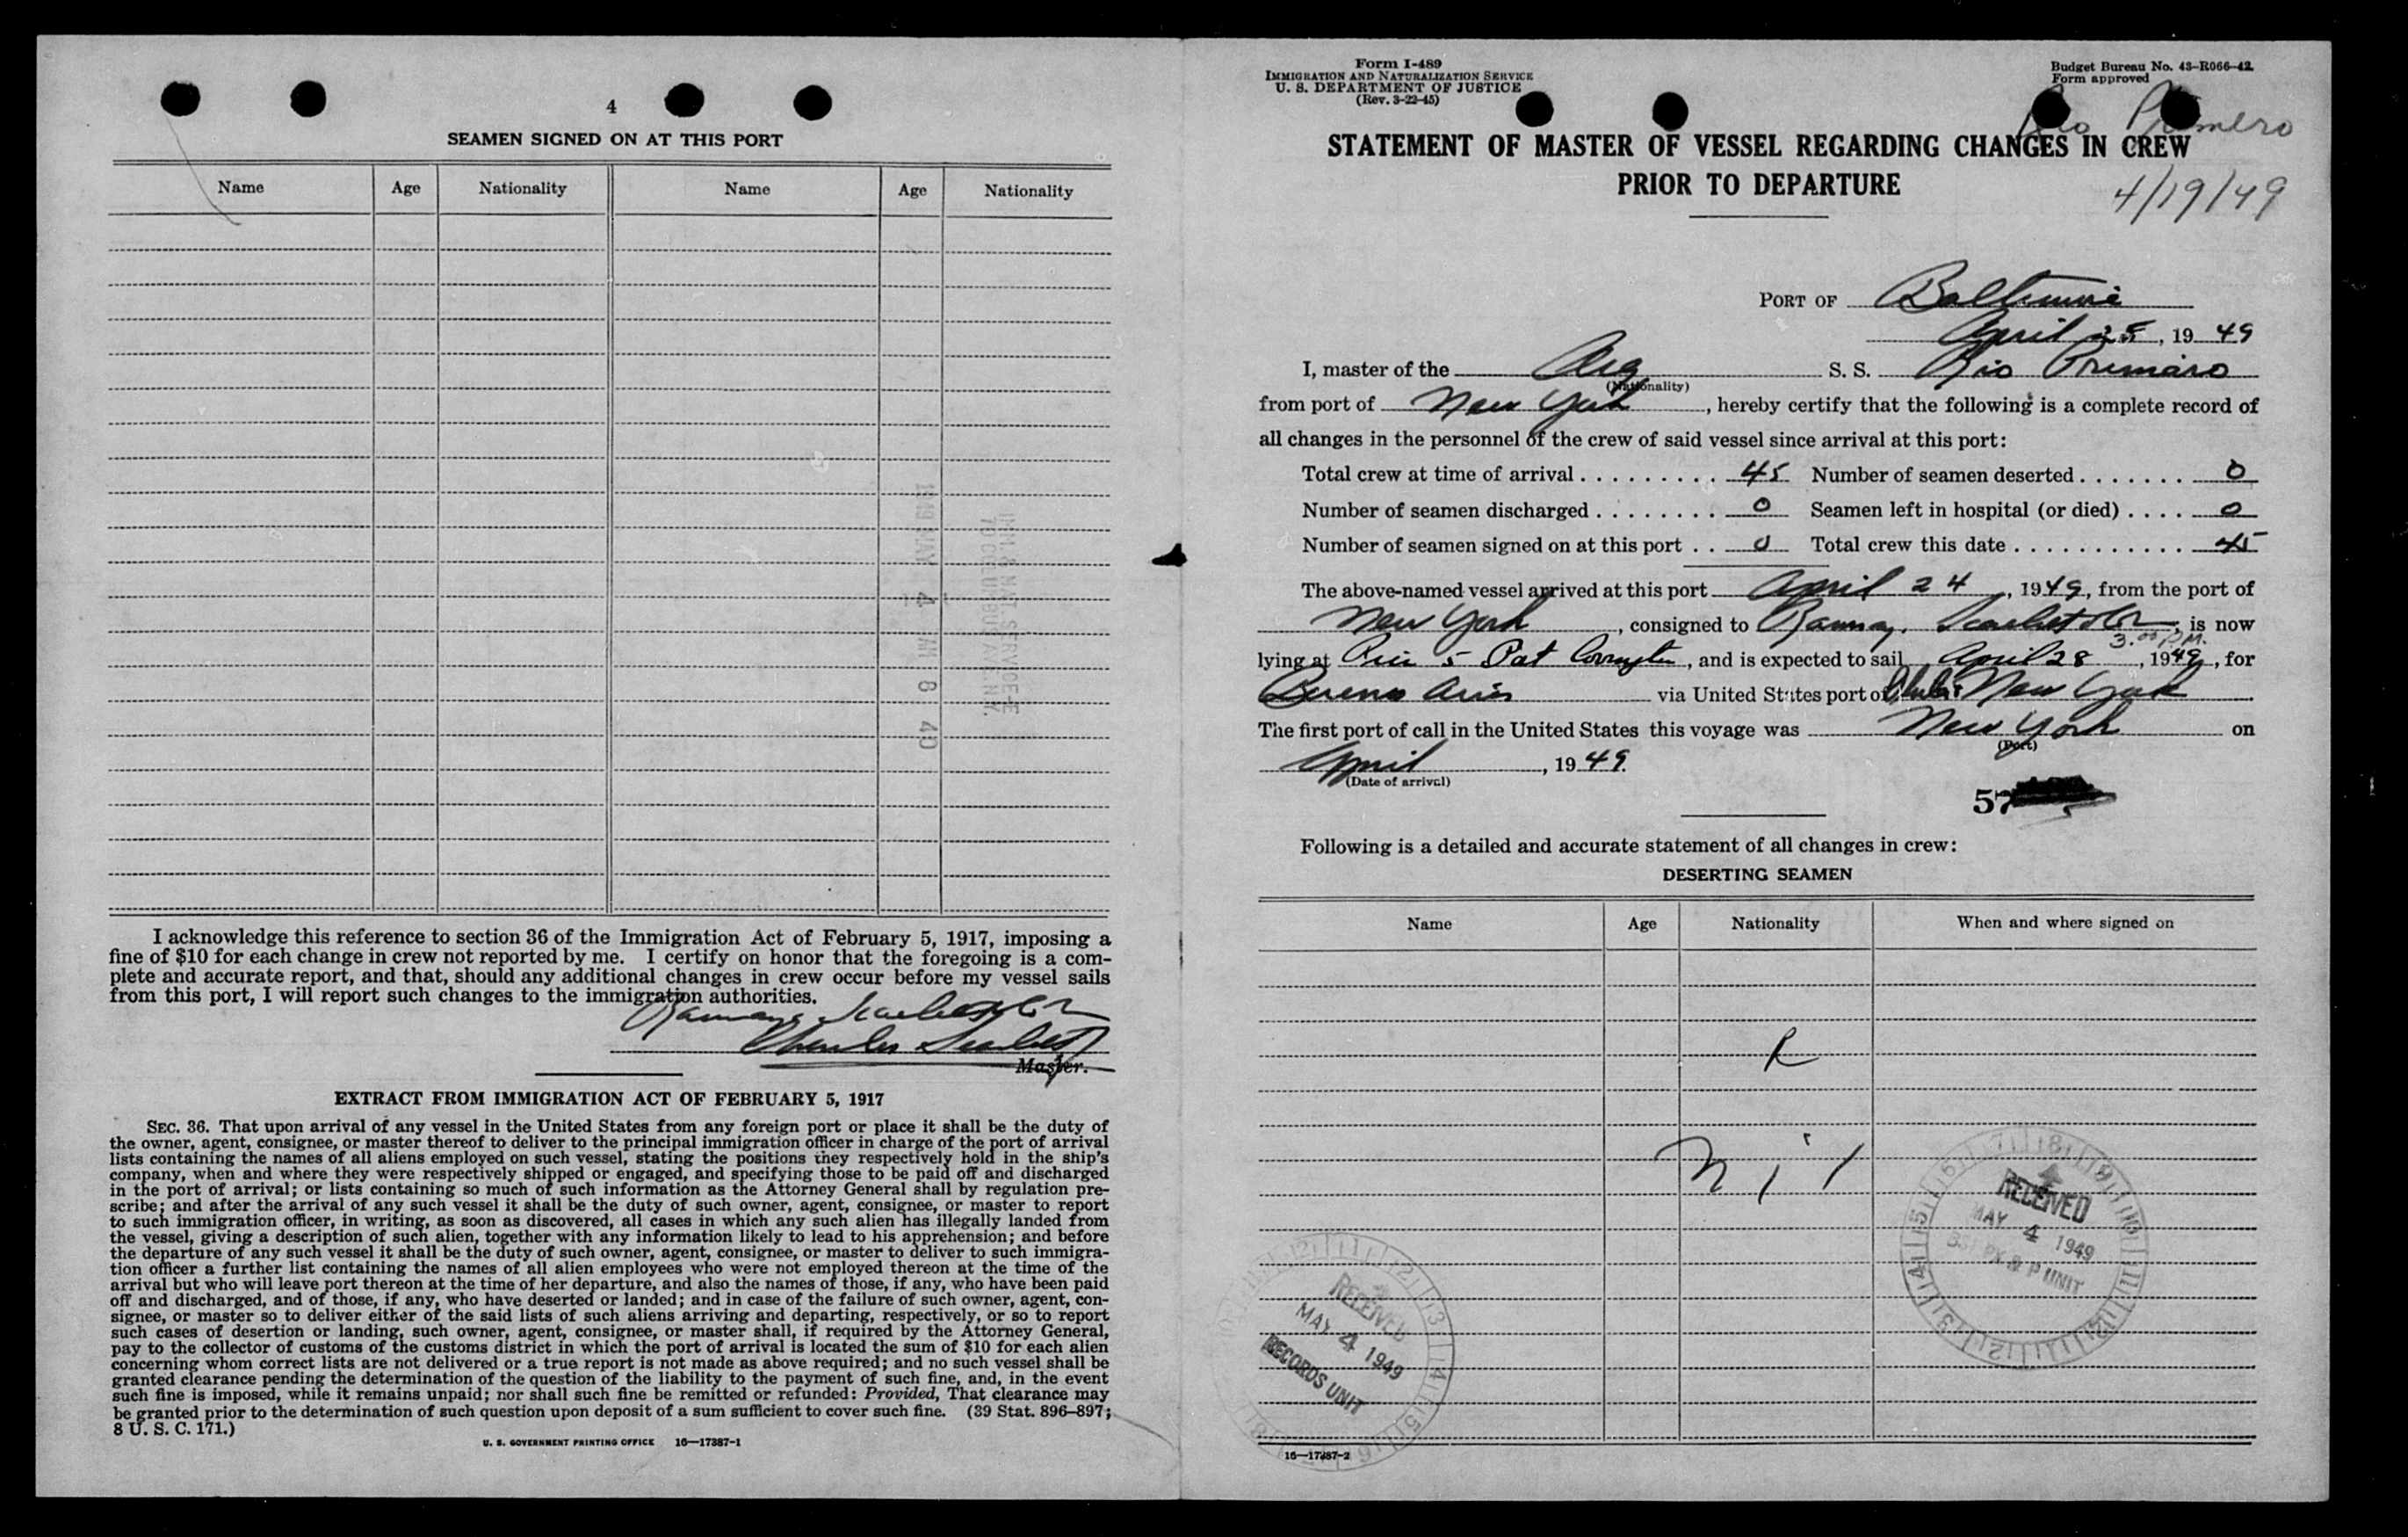 4
SEAMEN SIGNED ON AT THIS PORT
Name Age Nationality Name Age Nationality
1949 MAY 4 AM 8 40
IMM. & NAT. SERVICE
70 COLUMBUS AVE. N.Y.
I acknowledge this reference to section 36 of the Immigration Act of February 5, 1917, imposing a
fine of $10 for each change in crew not reported by me. I certify on honor that the foregoing is a com-
plete and accurate report, and that, should any additional changes in crew occur before my vessel sails
from this port, I will report such changes to the immigration authorities.
Ramsay, Scarlett & Co
Charles Scarlett
Master.
EXTRACT FROM IMMIGRATION ACT OF FEBRUARY 5, 1917
SEC. 36. That upon arrival of any vessel in the United States from any foreign port or place it shall be the duty of
the owner, agent, consignee, or master thereof to deliver to the principal immigration officer in charge of the port of arrival
lists containing the names of all aliens employed on such vessel, stating the positions they respectively hold in the ship's
company, when and where they were respectively shipped or engaged, and specifying those to be paid off and discharged
in the port of arrival; or lists containing so much of such information as the Attorney General shall by regulation pre-
scribe; and after the arrival of any such vessel it shall be the duty of such owner, agent, consignee, or master to report
to such immigration officer, in writing, as soon as discovered, all cases in which any such alien has illegally landed from
the vessel, giving a description of such alien, together with any information likely to lead to his apprehension; and before
the departure of any such vessel it shall be the duty of such owner, agent, consignee, or master to deliver to such immigra-
tion officer a further list containing the names of all alien employees who were not employed thereon at the time of the
arrival but who will leave port thereon at the time of her departure, and also the names of those, if any, who have been paid
off and discharged, and of those, if any, who have deserted or landed; and in case of the failure of such owner, agent, con-
signee, or master so to deliver either of the said lists of such aliens arriving and departing, respectively, or so to report
such cases of desertion or landing, such owner, agent, consignee, or master shall, if required by the Attorney General,
pay to the collector of customs of the customs district in which the port of arrival is located the sum of $10 for each alien
concerning whom correct lists are not delivered or a true report is not made as above required; and no such vessel shall be
granted clearance pending the determination of the question of the liability to the payment of such fine, and, in the event
such fine is imposed, while it remains unpaid; nor shall such fine be remitted or refunded: Provided, That clearance may
be granted prior to the determination of such question upon deposit of a sum sufficient to cover such fine. (39 Stat. 896–897;
8 U. S. C. 171.)
U. S. GOVERNMENT PRINTING OFFICE 16—17387-1
Form I-489
IMMIGRATION AND NATURALIZATION SERVICE
U. S. DEPARTMENT OF JUSTICE
(Rev. 3-22-45)
Budget Bureau No. 43-R066-42
Form approved
Rio Primero
4/19/49
STATEMENT OF MASTER OF VESSEL REGARDING CHANGES IN CREW
PRIOR TO DEPARTURE
PORT OF Baltimore
April 25, 1949
I, master of the Arg S. S. Rio Primero
(Nationality)
from port of New York, hereby certify that the following is a complete record of
all changes in the personnel of the crew of said vessel since arrival at this port:
Total crew at time of arrival 45 Number of seamen deserted 0
Number of seamen discharged 0 Seamen left in hospital (or died) 0
Number of seamen signed on at this port 0 Total crew this date 45
The above-named vessel arrived at this port April 24, 1949, from the port of
New York, consigned to Ramsay, Scarlett & Co, is now
3.00 P.M.
lying at Pier 5 Pat Covington, and is expected to sail April 28, 1949, for
Buenos Aires via United States port of Phila & New York
The first port of call in the United States this voyage was New York on
(Port)
April, 1949.
(Date of arrival)
57
Following is a detailed and accurate statement of all changes in crew:
DESERTING SEAMEN
Name Age Nationality When and where signed on
R
Nil
RECEIVED
MAY 4 1949
P UNIT
RECEIVED
MAY 4 1949
RECORDS UNIT
16—17387-2